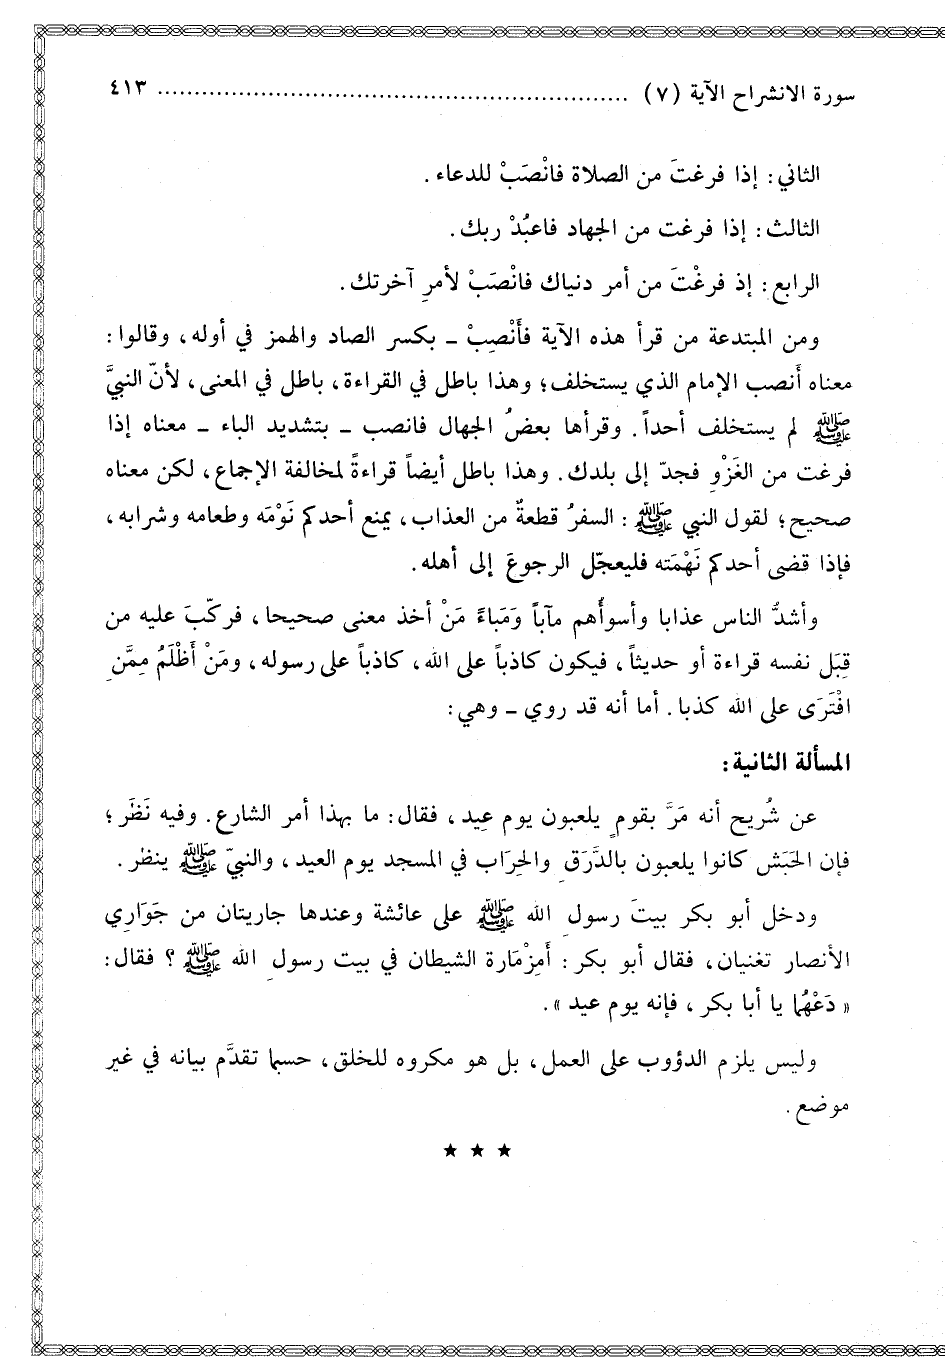 سورة الانشراح الآية (٧) ............................................................... ٤١٣
الثاني: إذا فرغتَ من الصلاة فانْصَبْ للدعاء.
الثالث: إذا فرغت من الجهاد فاعبُدْ ربك.
الرابع: إذ فرغْتَ من أمر دنياك فانْصَبْ لأمرِ آخرتك.
ومن المبتدعة من قرأ هذه الآية فأَنْصِبْ ـ بكسر الصاد والهمز في أوله، وقالوا:
معناه أَنصب الإمام الذي يستخلف؛ وهذا باطل في القراءة، باطل في المعنى، لأنّ النبيَّ
ﷺ لم يستخلف أحداً. وقرأها بعضُ الجهال فانصب ـ بتشديد الباء ـ معناه إذا
فرغت من الغَزْوِ فجدّ إلى بلدك. وهذا باطل أيضاً قراءةً لمخالفة الإجماع، لكن معناه
صحيح؛ لقول النبي ﷺ: السفرُ قطعةٌ من العذاب، يمنع أحدكم نَوْمَه وطعامه وشرابه،
فإذا قضى أحدكم نَهْمَته فليعجّل الرجوعَ إلى أهله.
وأشدُّ الناس عذابا وأسوأُهم مآباً وَمَباءً مَنْ أخذ معنى صحيحا، فركّبَ عليه من
قِبَل نفسه قراءة أو حديثاً، فيكون كاذباً على الله، كاذباً على رسوله، ومَنْ أَظْلَمُ مِمَّنِ
افْتَرَى على الله كذبا. أما أنه قد روي ـ وهي:
المسألة الثانية:
عن شُريح أنه مَرَّ بقومٍ يلعبون يوم عِيد، فقال: ما بهذا أمر الشارع. وفيه نَظَر؛
فإن الحَبَش كانوا يلعبون بالدَّرَقِ والحِرَاب في المسجد يوم العيد، والنبيّ ﷺ ينظر.
ودخل أبو بكر بيتَ رسولِ الله ﷺ على عائشة وعندها جاريتان من جَوَارِي
الأنصار تغنيان، فقال أبو بكر: أمِزْمَارة الشيطان في بيت رسولِ الله ﷺ؟ فقال:
« دَعْهُما يا أبا بكر، فإنه يوم عيد ».
وليس يلزم الدؤوب على العمل، بل هو مكروه للخلق، حسبما تقدَّم بيانه في غير
موضع.
★ ★ ★